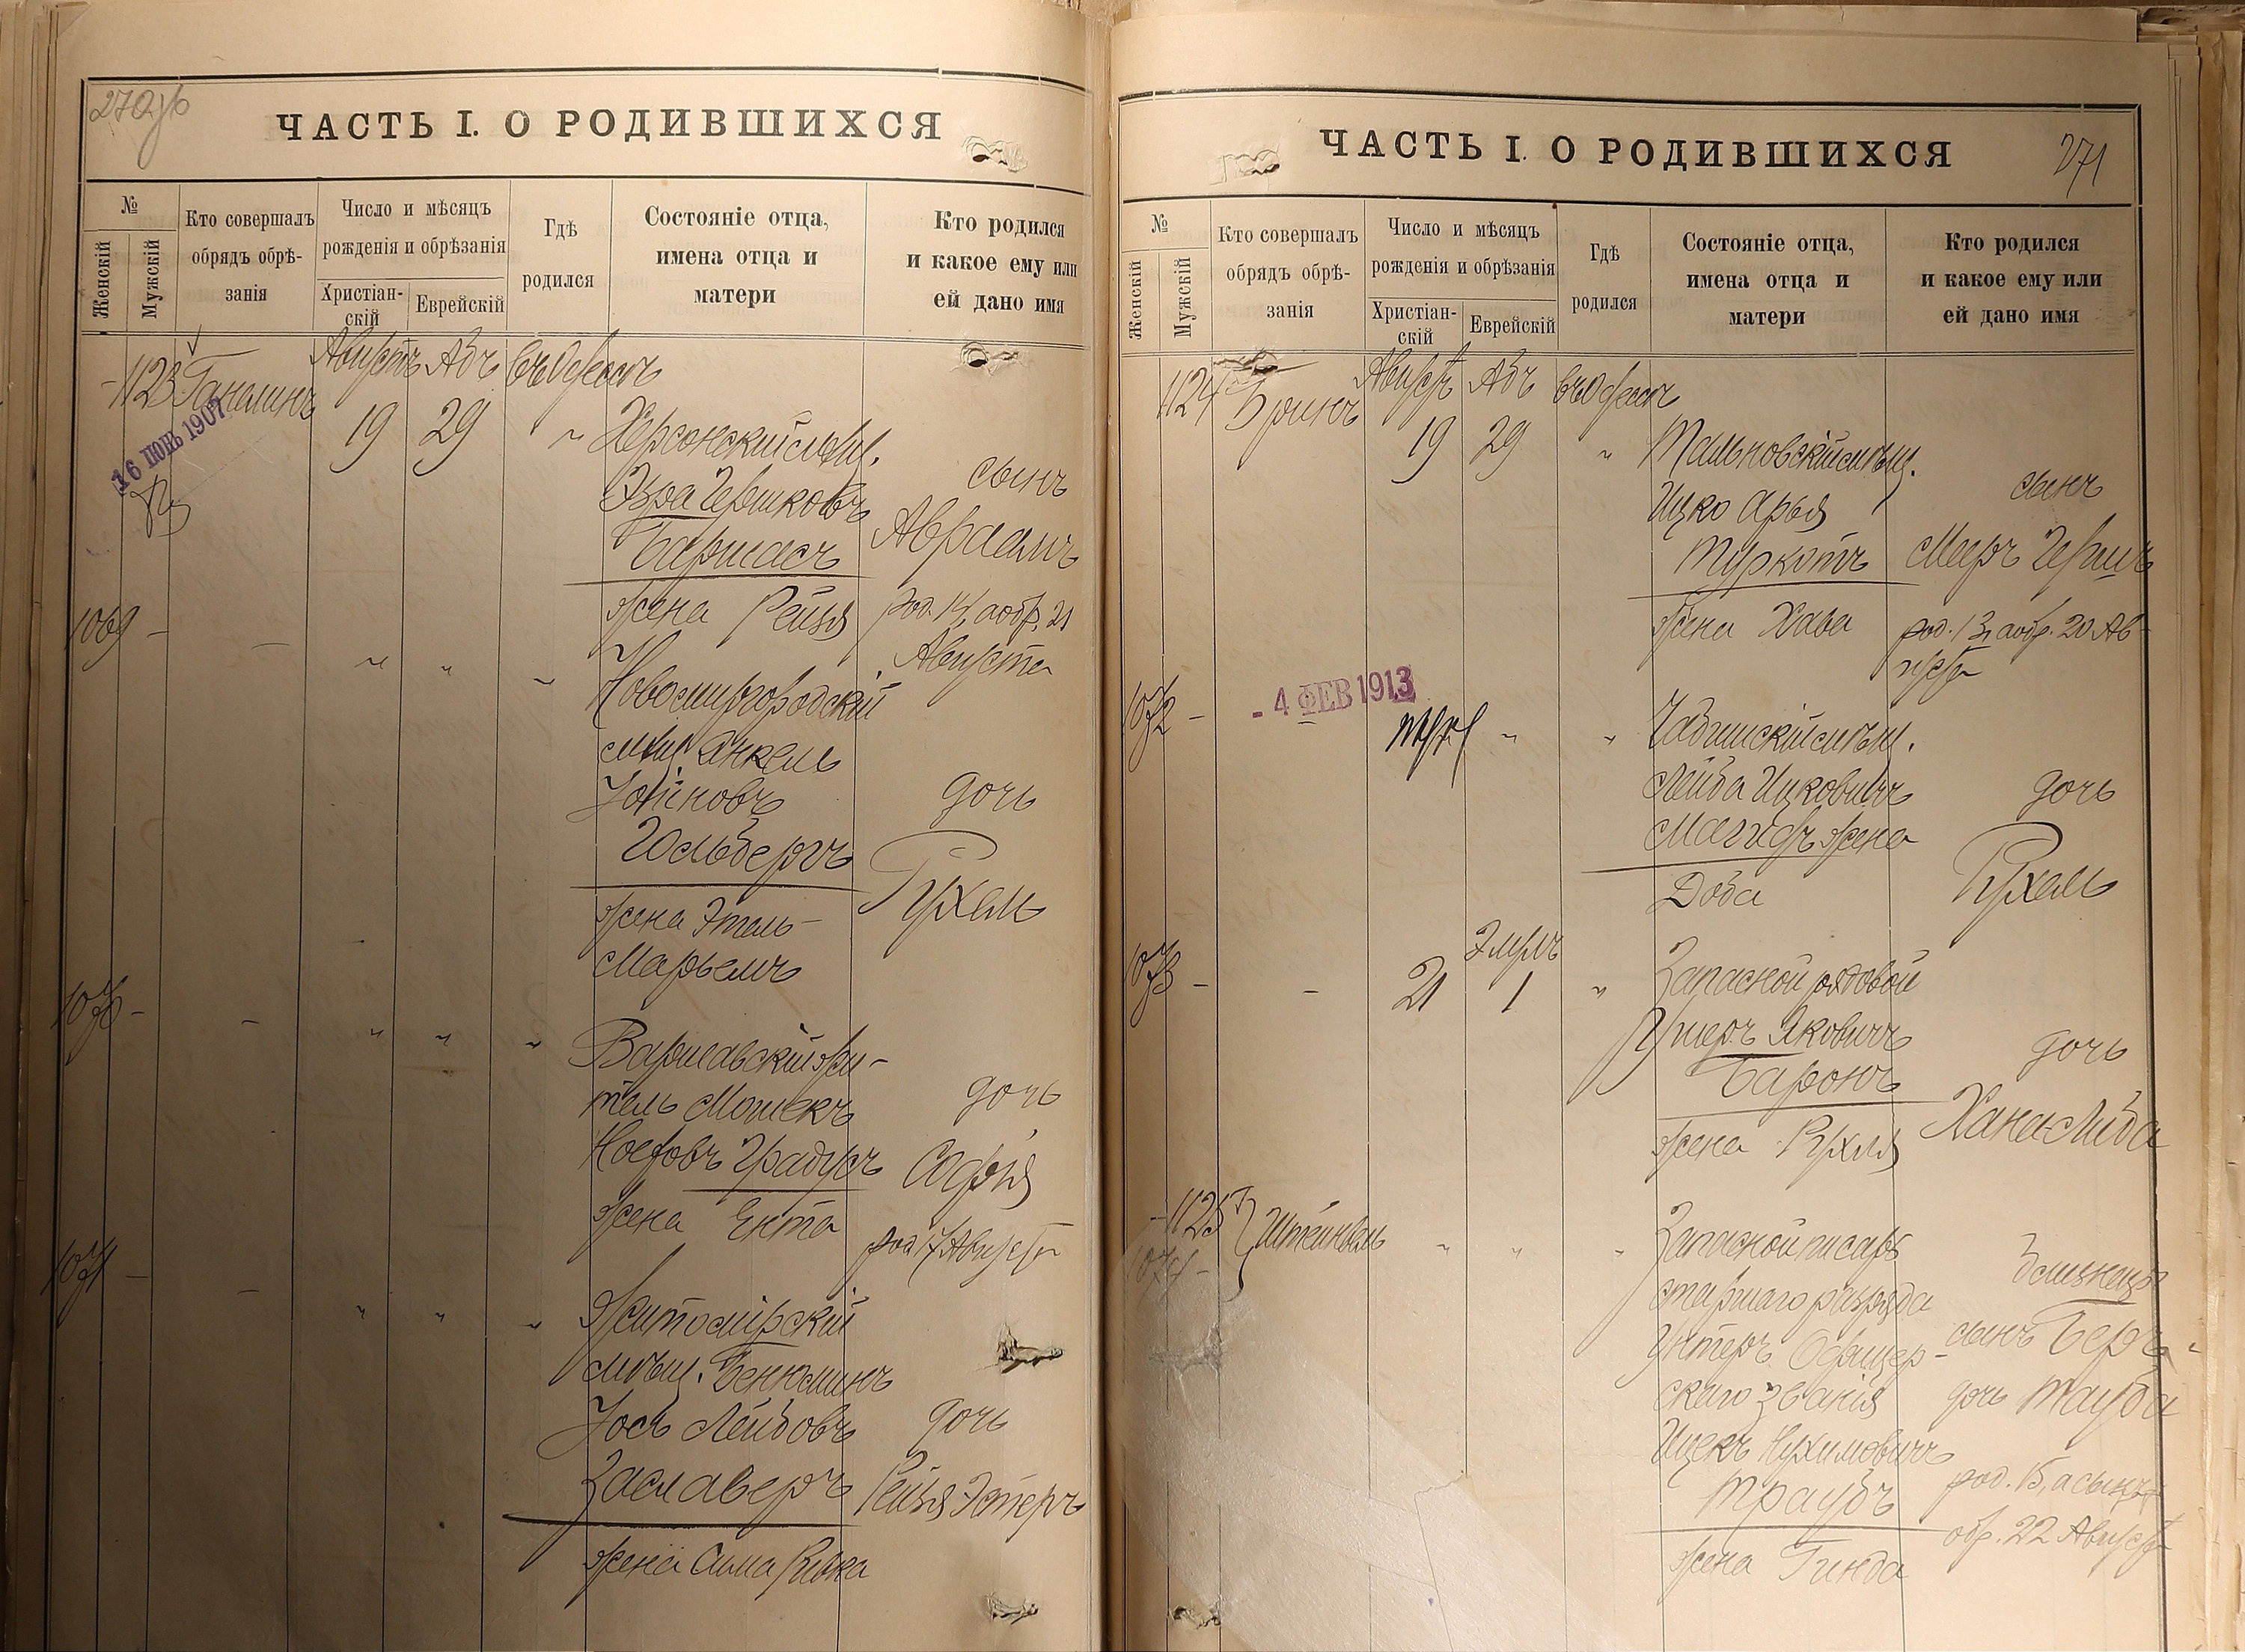 270об
ЧАСТЬ I. О РОДИВШИХСЯ
№
Женскій
Мужскій
Кто совершалъ
обрядъ обрѣ-
занія
Число и мѣсяцъ
рожденія и обрѣзанія
Христіан-
скій
Еврейскій
Гдѣ
родился
Состояніе отца,
имена отца и
матери
Кто родился
и какое ему или
ей дано имя
Августъ Абъ въ Одессѣ
-1123 19 29 " Херсонскій мѣщ.
16 ІЮНЬ 1907
Эзра Гершковъ
Баршасъ
жена Рейзя
сынъ
Авраамъ
род. 14, а обр. 21
Августа
1069 - - " " "
Новомиргородскій
мѣщ Янкель
Іойновъ
Гольбергъ
жена Этель-
Марьемъ
дочь
Рухель
1070 - - " " "
Варшавскій жи-
тель Мошекъ
Іосефовъ Градусъ
жена Ента
дочь
Софія
род 17 Августа
1071 - - " " "
Житомірскій
мѣщ. Бенюминъ
Іось Лейбовъ
Заславеръ
жена Сима Ривка
дочь
Рейзя Эстеръ
ЧАСТЬ I. О РОДИВШИХСЯ
271
№
Женскій
Мужскій
Кто совершалъ
обрядъ обрѣ-
занія
Число и мѣсяцъ
рожденія и обрѣзанія
Христіан-
скій
Еврейскій
Гдѣ
родился
Состояніе отца,
имена отца и
матери
Кто родился
и какое ему или
ей дано имя
1124 Бринъ Августъ Абъ въ Одессѣ
19 29 " Тальновскій мѣщ.
Ицко Арья
Туркотъ
жена Хава
сынъ
Мееръ Гершъ
род. 13, а обр. 20 Ав-
густа
1072 -
- 4 ФЕВ 1913
" "
мѣщ.
Лейба Ицковичъ
Магидъ жена
Доба
дочь
Рухель
1073 - - 21 Элулъ 1 "
Запасной рядовой
Ушеръ Яковичъ
Баронъ
жена Рухля
дочь
Хана Либа
-1125
1074 -
" " "
Запасной писарь
старшаго разряда
Унтеръ Офицер-
скаго званія
Ицекъ Нухимовичъ
Траубъ
жена Гинда
близнецы
сынъ Беръ
дочь Тауба
род. 15, а сынъ
обр. 22 Августа